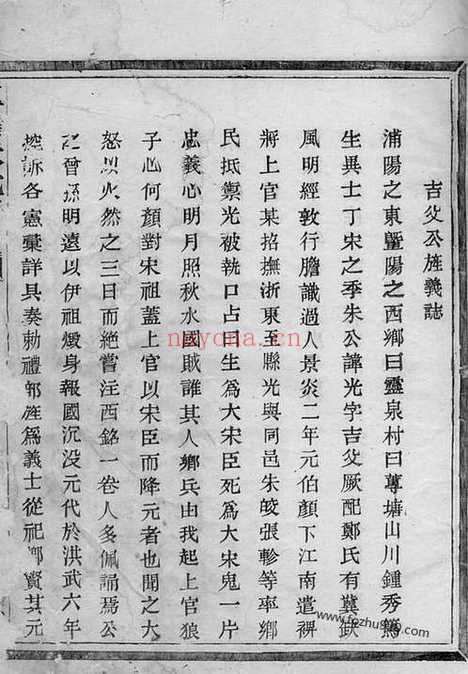 吉父公旌義誌
浦陽之東暨陽之西鄉曰靈泉村曰蓴塘山川鍾秀篤
生異士丁宋之季朱公諱光字吉父厥配鄭氏有冀缺
風明經敦行膽識過人景炎二年元伯顏下江南遣裨
將上官某招撫浙東至縣光與同邑朱皎張軫等率鄉
民抵禦光被執口占曰生爲大宋臣死爲大宋鬼一片
忠義心明月照秋水國賊誰其人鄉兵由我起上官狼
子心何顏對宋祖蓋上官以宋臣而降元者也聞之大
怒以火然之三日而絕嘗注西銘一卷人多佩誦焉公
之曾孫明遠以伊祖燬身報國沉没元代於洪武六年
控訴各憲彙詳具奏勅禮部旌爲義士從祀鄉賢其元
nayona.cn
www.fezhuan.com